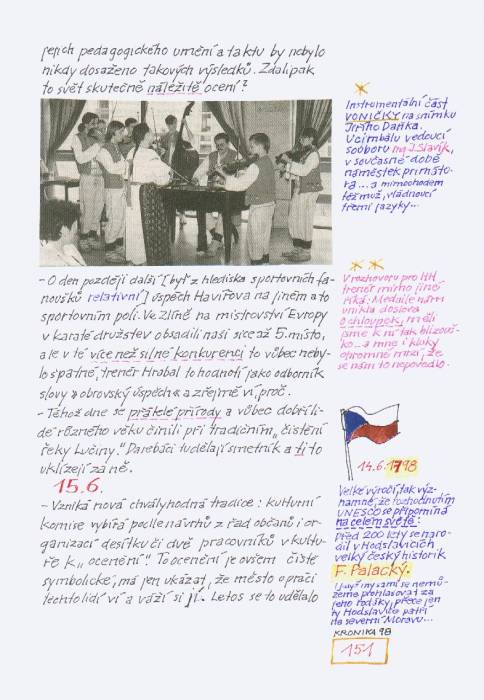 jejich pedagogického umění a taktu by nebylo
nikdy dosaženo takových výsledků. Zdalipak
to svět skutečně náležitě ocení?
- O den později další [byť z hlediska sportovních fa-
noušků relativní] úspěch Havířova na jiném a to
sportovním poli. Ve Zlíně na mistrovství Evropy
v karate družstev obsadili naši sice až 5. místo,
ale v té více než silné konkurenci to vůbec neby-
lo špatné, trenér Hrabal to hodnotí jako odborník
slovy „obrovský úspěch“ a zřejmě ví, proč.
- Téhož dne se přátelé přírody a vůbec dobří li-
dé různého věku činili při tradičním „čistění
řeky Lučiny.“ Darebáci tu dělají smetník a ti to
uklízejí za ně.
15.6.
- Vzniká nová chvályhodná tradice: kulturní
komise vybírá podle návrhů z řad občanů i or-
ganizací desítku či dvě pracovníků v kultu-
ře k „ocenění“. To ocenění je ovšem čistě
symbolické, má jen ukázat, že město o práci
těchto lidí ví a váží si jí. Letos se to udělalo
Instrumentální část
VONIČKY na snímku
Jiřího Daňka.
U cimbálu vedoucí
souboru Ing. J. Slavík,
v současné době
náměstek primáto-
ra... a mimochodem
též muž, vládnoucí
třemi jazyky...
V rozhovoru pro HH
trenér mimo jiné
říká: Medaile nám
unikla doslova
o chloupek, měli
jsme k ní tak blízouč-
ko... a mne i kluky
ohromně mrzí, že
se nám to nepovedlo.
14.6.1798
Velké výročí, tak výz-
namné, že rozhodnutím
UNESCO se připomíná
na celém světě:
Před 200 lety se naro-
dil v Hodslavicích
velký český historik
F. Palacký.
I když my sami se nemů-
žeme prohlašovat za
jeho rodáky, přece jen
ty Hodslavice patří
na severní Moravu...
KRONIKA 98
151